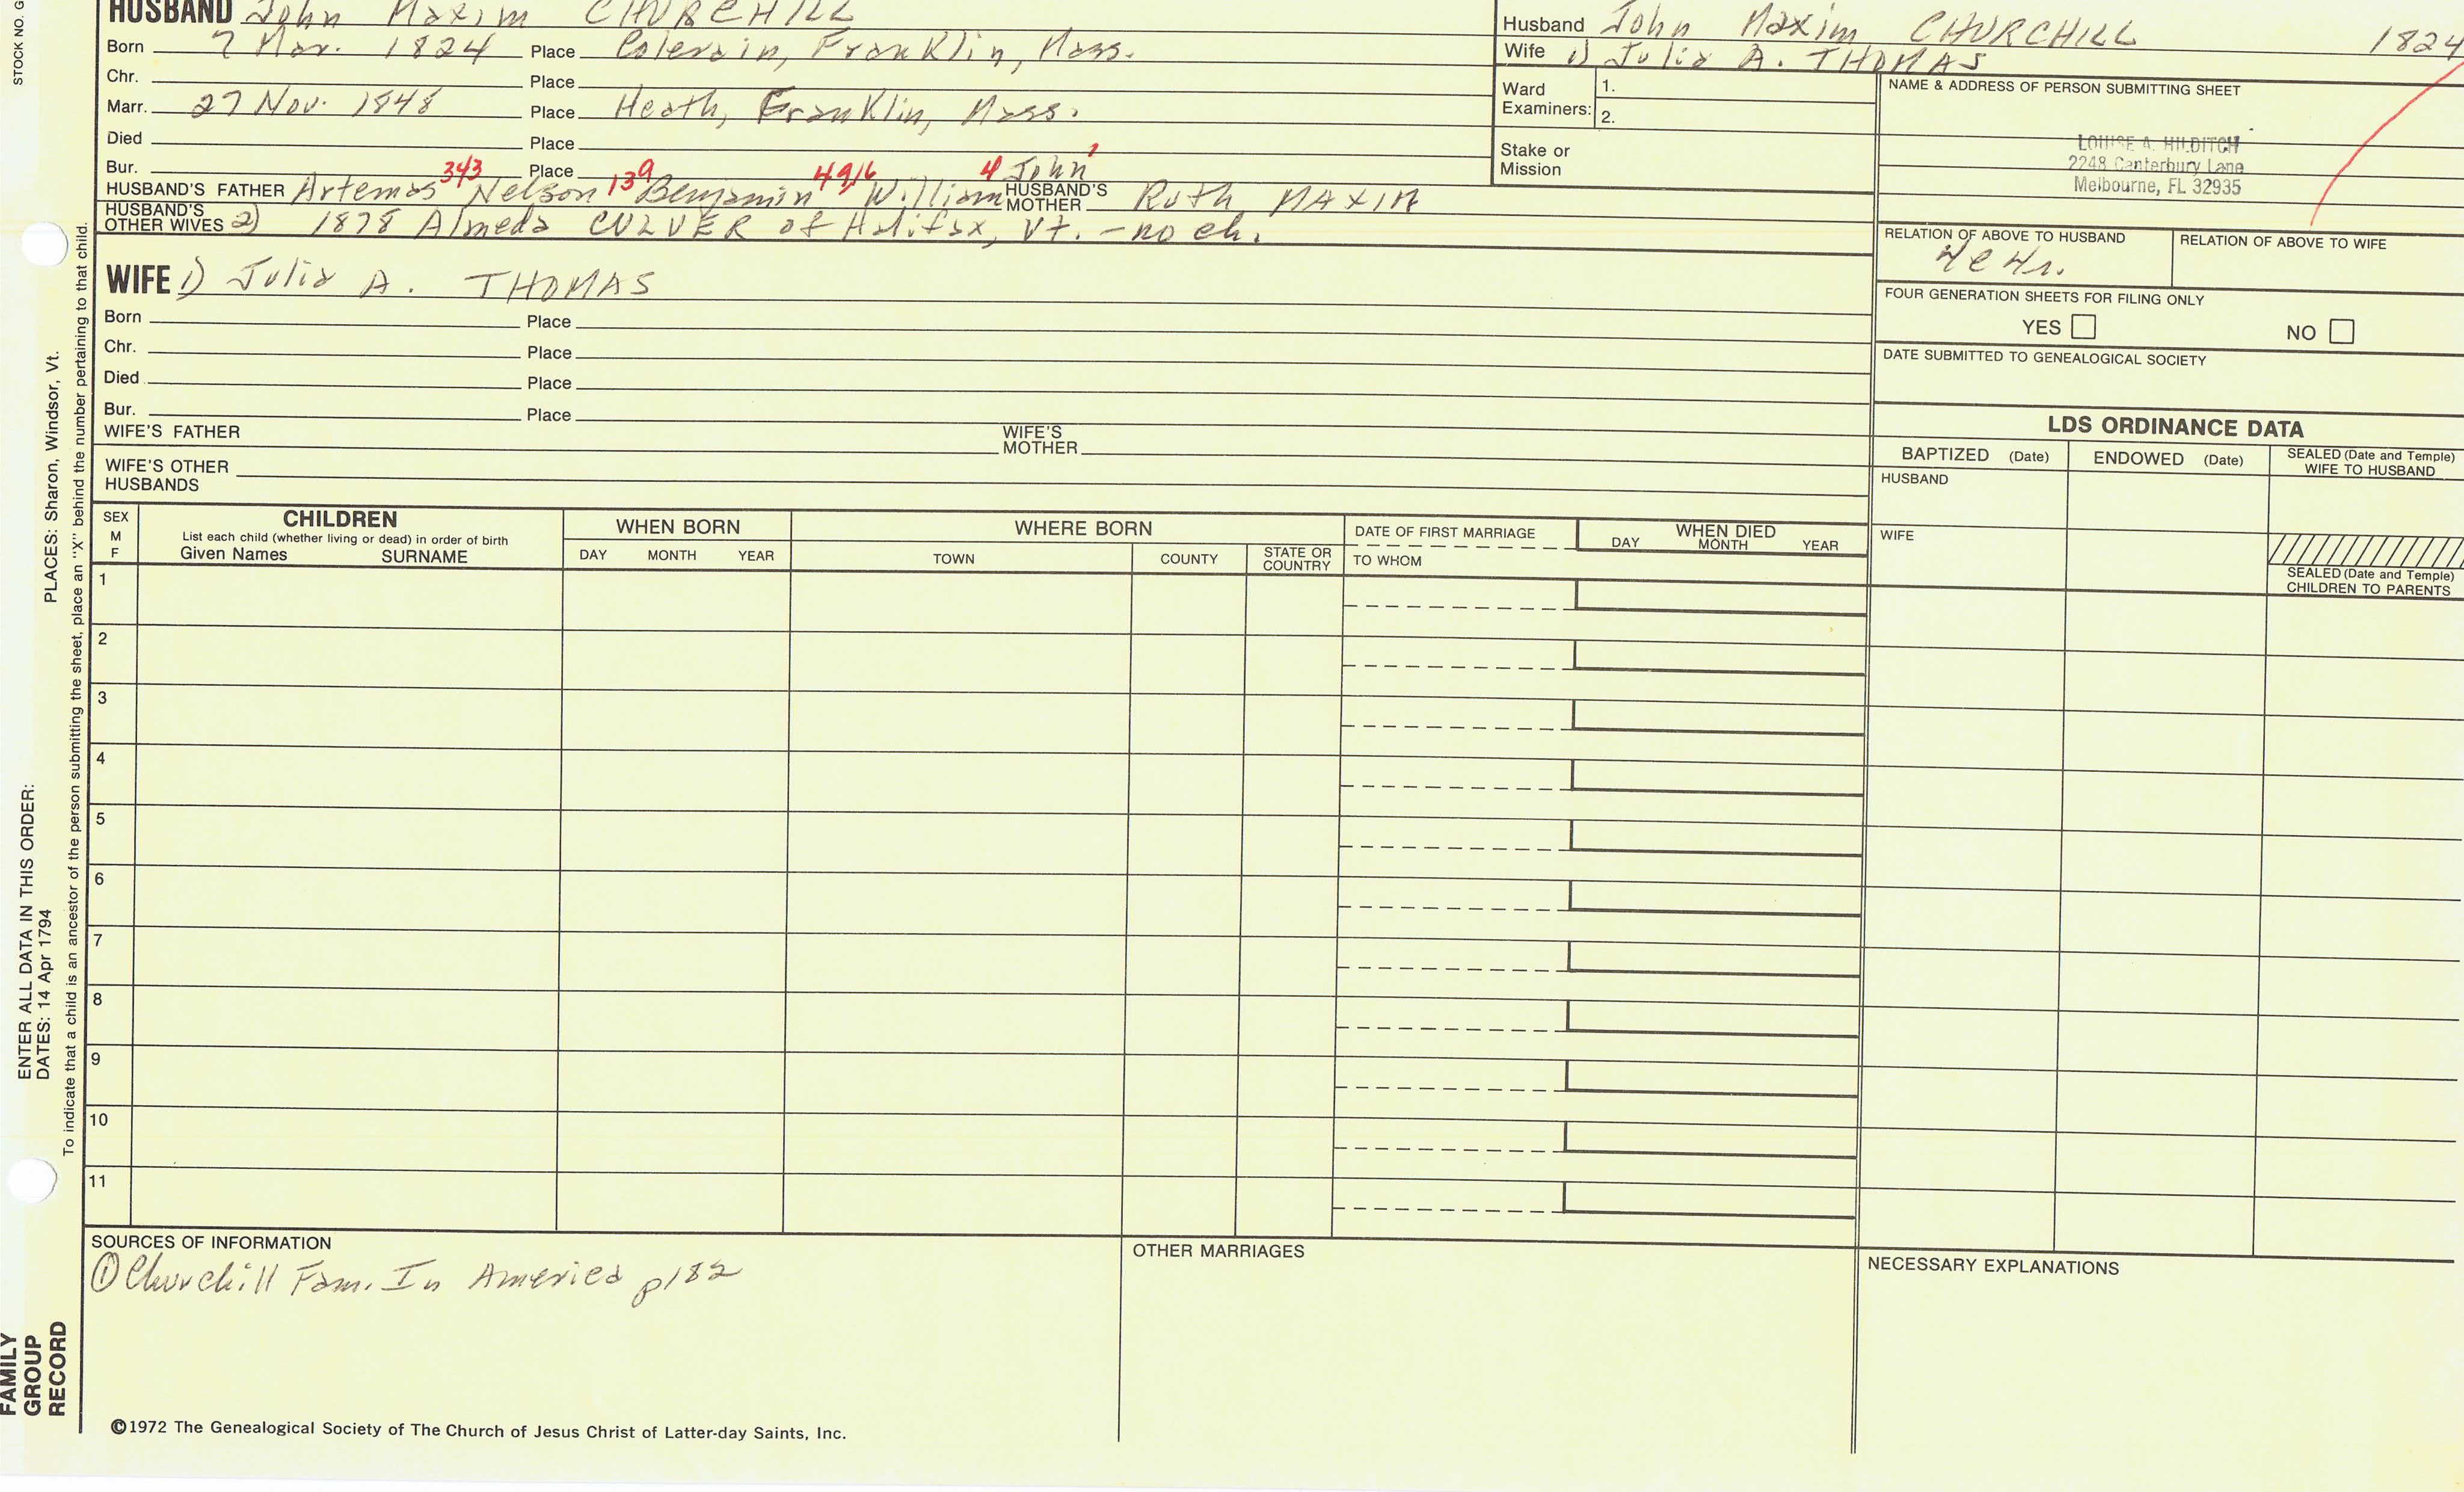 HUSBAND John Maxim CHURCHILL
Born 7 Mar. 1824 Place Colerain, Franklin, Mass.
Chr. Place
Marr. 27 Nov. 1848 Place Heath, Franklin, Mass.
Died Place
Bur. Place
HUSBAND'S FATHER Artemas 343 Nelson 139 Benjamin 4916 William 4 John 1 HUSBAND'S MOTHER Ruth MAXIM
HUSBAND'S OTHER WIVES 2) 1878 Almeda CULVER of Halifax, Vt. - no ch.
WIFE 1) Julia A. THOMAS
Born Place
Chr. Place
Died Place
Bur. Place
WIFE'S FATHER WIFE'S MOTHER
WIFE'S OTHER HUSBANDS
Husband John Maxim CHURCHILL 1824
Wife 1) Julia A. THOMAS
Ward Examiners: 1.
2.
Stake or Mission
NAME & ADDRESS OF PERSON SUBMITTING SHEET
LOUISE A. HILDITCH
2248 Canterbury Lane
Melbourne, FL 32935
RELATION OF ABOVE TO HUSBAND RELATION OF ABOVE TO WIFE
FOUR GENERATION SHEETS FOR FILING ONLY
YES NO
DATE SUBMITTED TO GENEALOGICAL SOCIETY
LDS ORDINANCE DATA
BAPTIZED (Date) ENDOWED (Date) SEALED (Date and Temple) WIFE TO HUSBAND
HUSBAND
WIFE
SEALED (Date and Temple) CHILDREN TO PARENTS
SEX M F
CHILDREN
List each child (whether living or dead) in order of birth
Given Names SURNAME
WHEN BORN
DAY MONTH YEAR
WHERE BORN
TOWN COUNTY STATE OR COUNTRY
DATE OF FIRST MARRIAGE
TO WHOM
WHEN DIED
DAY MONTH YEAR
1
2
3
4
5
6
7
8
9
10
11
SOURCES OF INFORMATION
① Churchill Fam. In America p182
OTHER MARRIAGES
NECESSARY EXPLANATIONS
©1972 The Genealogical Society of The Church of Jesus Christ of Latter-day Saints, Inc.
STOCK NO. G
ENTER ALL DATA IN THIS ORDER:
DATES: 14 Apr 1794 PLACES: Sharon, Windsor, Vt.
To indicate that a child is an ancestor of the person submitting the sheet, place an "X" behind the number pertaining to that child.
FAMILY
GROUP
RECORD